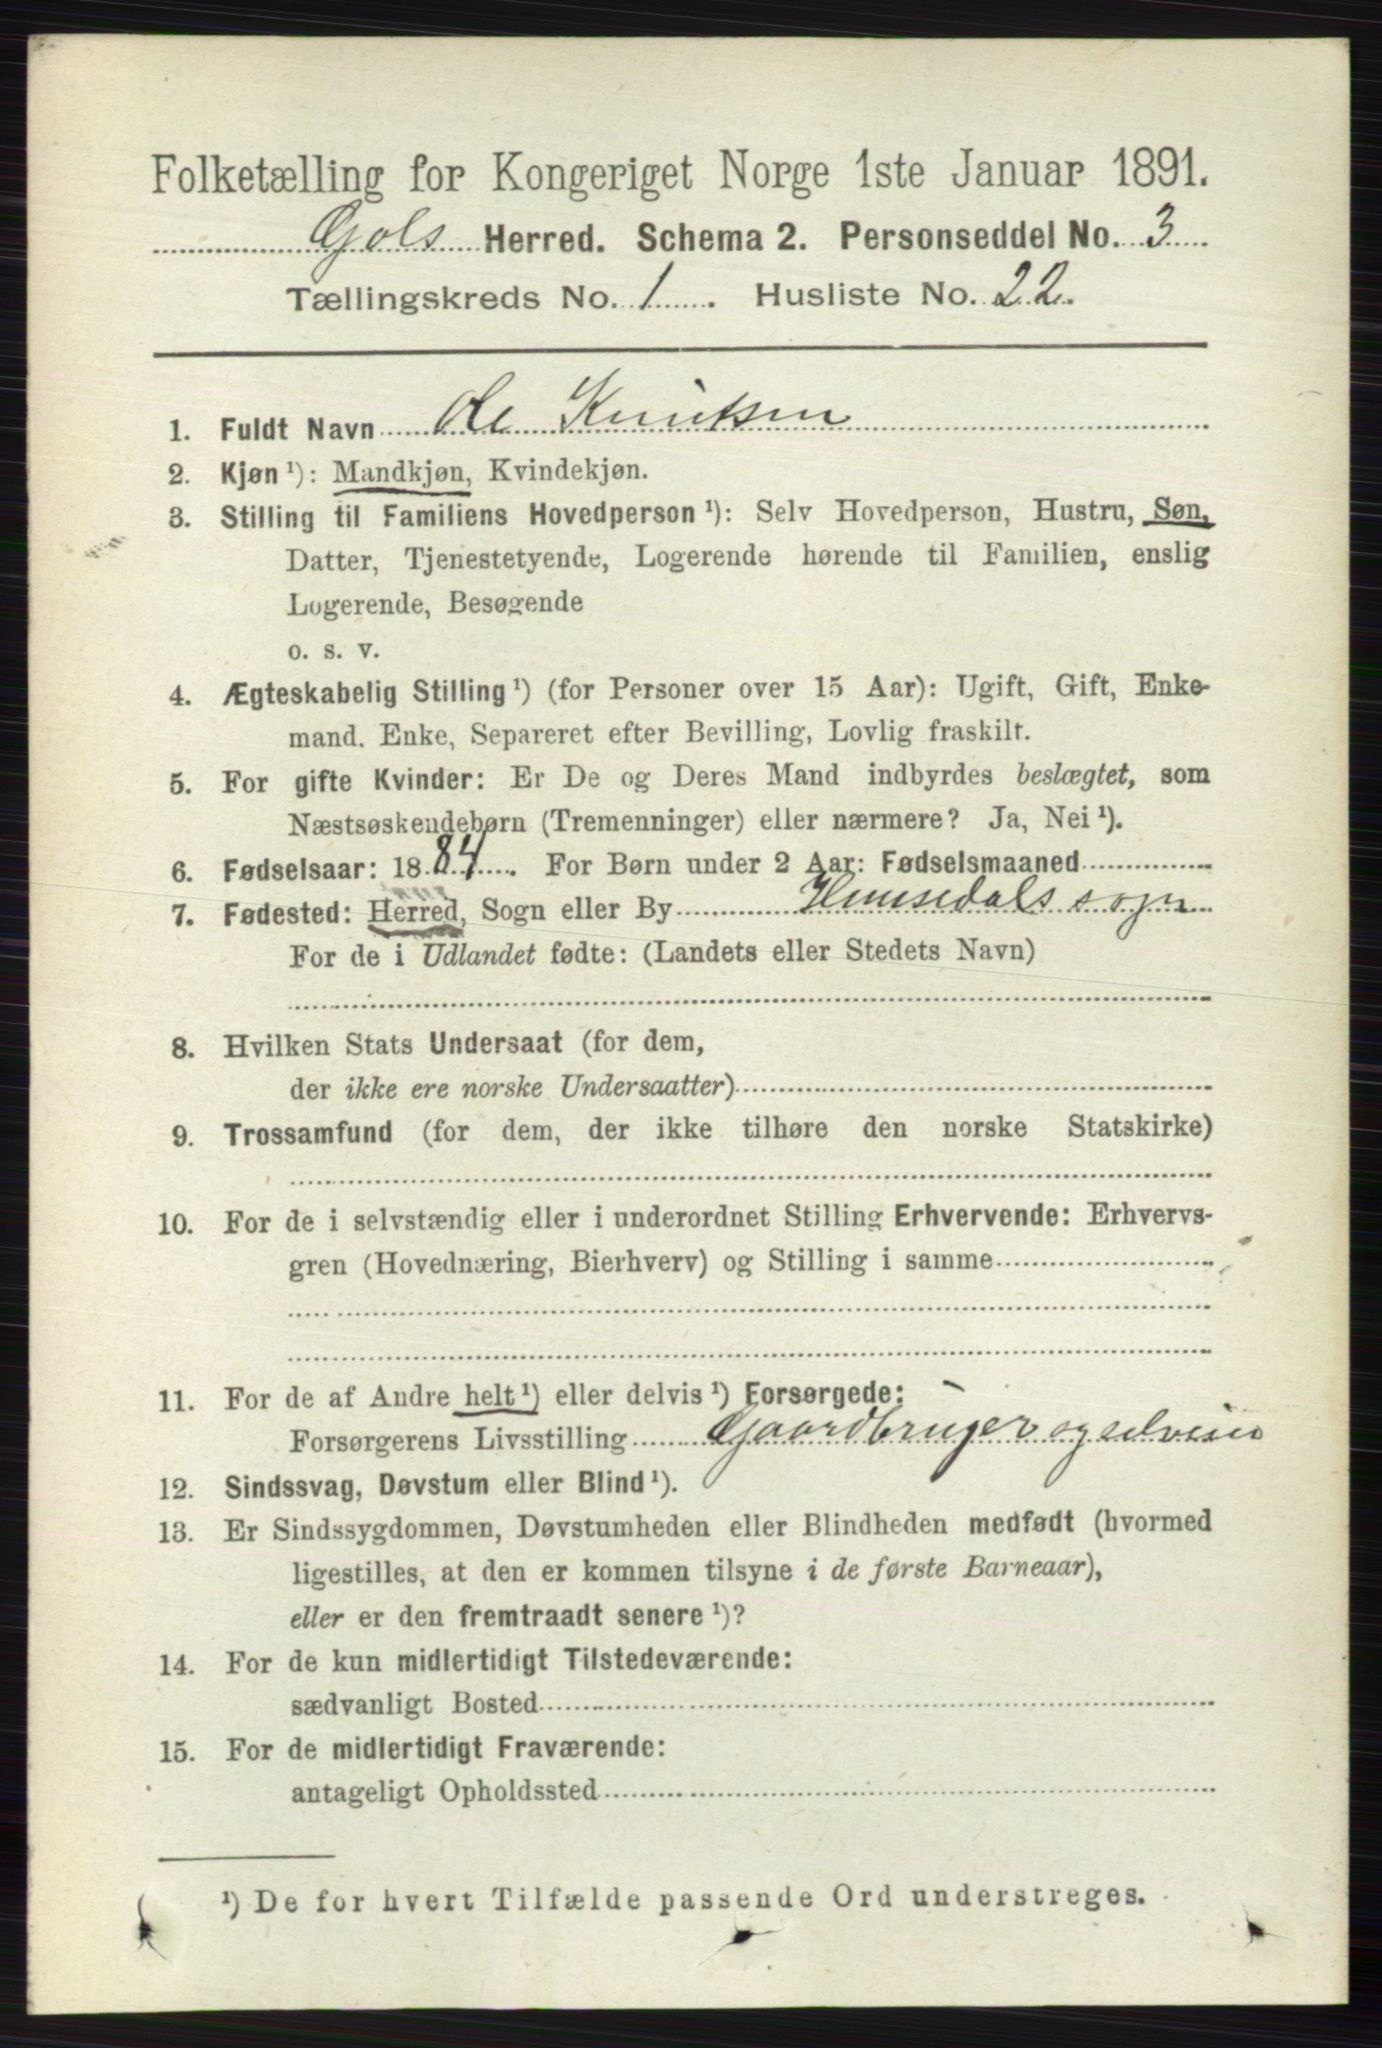 Folketælling for Kongeriget Norge 1ste Januar 1891.
Gols Herred. Schema 2. Personseddel No. 3
Tællingskreds No. 1. Husliste No. 22.
1. Fuldt Navn Ole Knutsen
2. Kjøn ¹): Mandkjøn, Kvindekjøn.
3. Stilling til Familiens Hovedperson ¹): Selv Hovedperson, Hustru, Søn,
Datter, Tjenestetyende, Logerende hørende til Familien, enslig
Logerende, Besøgende
o. s. v.
4. Ægteskabelig Stilling ¹) (for Personer over 15 Aar): Ugift, Gift, Enke-
mand, Enke, Separeret efter Bevilling, Lovlig fraskilt.
5. For gifte Kvinder: Er De og Deres Mand indbyrdes beslægtet, som
Næstsøskendebørn (Tremenninger) eller nærmere? Ja, Nei ¹).
6. Fødselsaar: 1884. For Børn under 2 Aar: Fødselsmaaned
7. Fødested: Herred, Sogn eller By Hemsedals sogn
For de i Udlandet fødte: (Landets eller Stedets Navn)
8. Hvilken Stats Undersaat (for dem,
der ikke ere norske Undersaatter)
9. Trossamfund (for dem, der ikke tilhøre den norske Statskirke)
10. For de i selvstændig eller i underordnet Stilling Erhvervende: Erhvervs-
gren (Hovednæring, Bierhverv) og Stilling i samme
11. For de af Andre helt ¹) eller delvis ¹) Forsørgede:
Forsørgerens Livsstilling Gaardbruger og selveier
12. Sindssvag, Døvstum eller Blind ¹).
13. Er Sindssygdommen, Døvstumheden eller Blindheden medfødt (hvormed
ligestilles, at den er kommen tilsyne i de første Barneaar),
eller er den fremtraadt senere ¹)?
14. For de kun midlertidigt Tilstedeværende:
sædvanligt Bosted
15. For de midlertidigt Fraværende:
antageligt Opholdssted
¹) De for hvert Tilfælde passende Ord understreges.